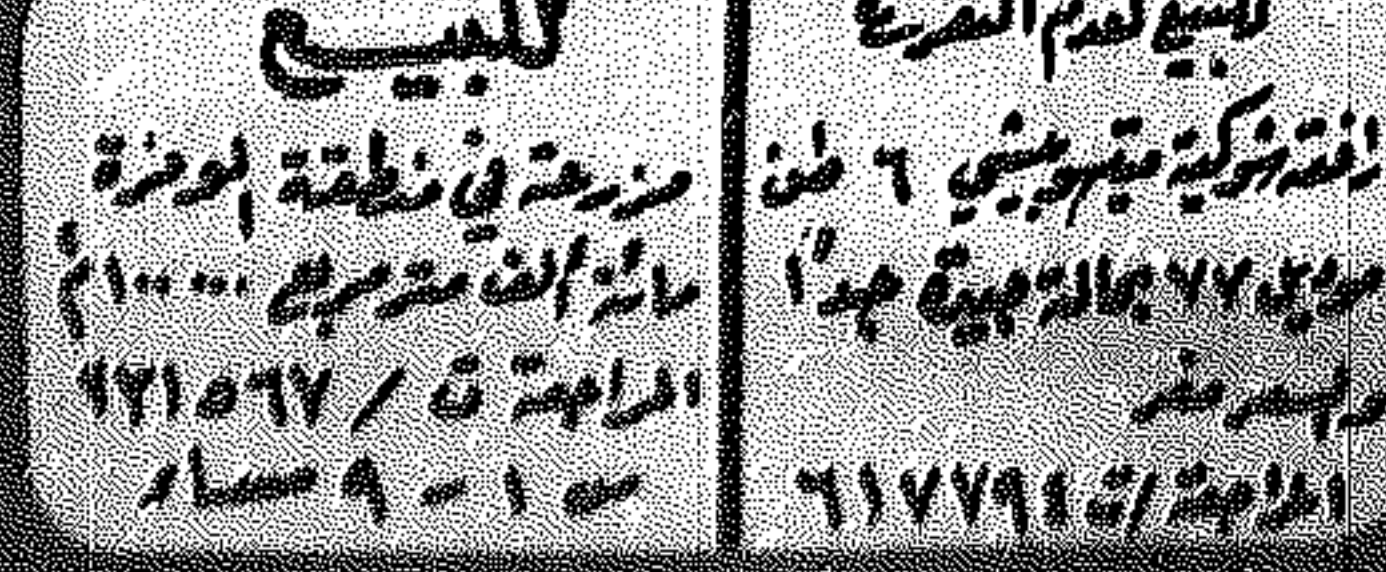 للبيع لعدم التفرغ
رافعة شوكية ميتسوبيشي ٦ طن
موديل ٧٧ بحالة جيدة جداً
والسعر مغر
المراجعة / ت ٦١٧٧٩١
للبيع
مزرعة في منطقة
مائة ألف متر مربع ١٠٠٠٠٠ م
المراجعة ت / ٥٦٧
من ١ - ٩ مساء